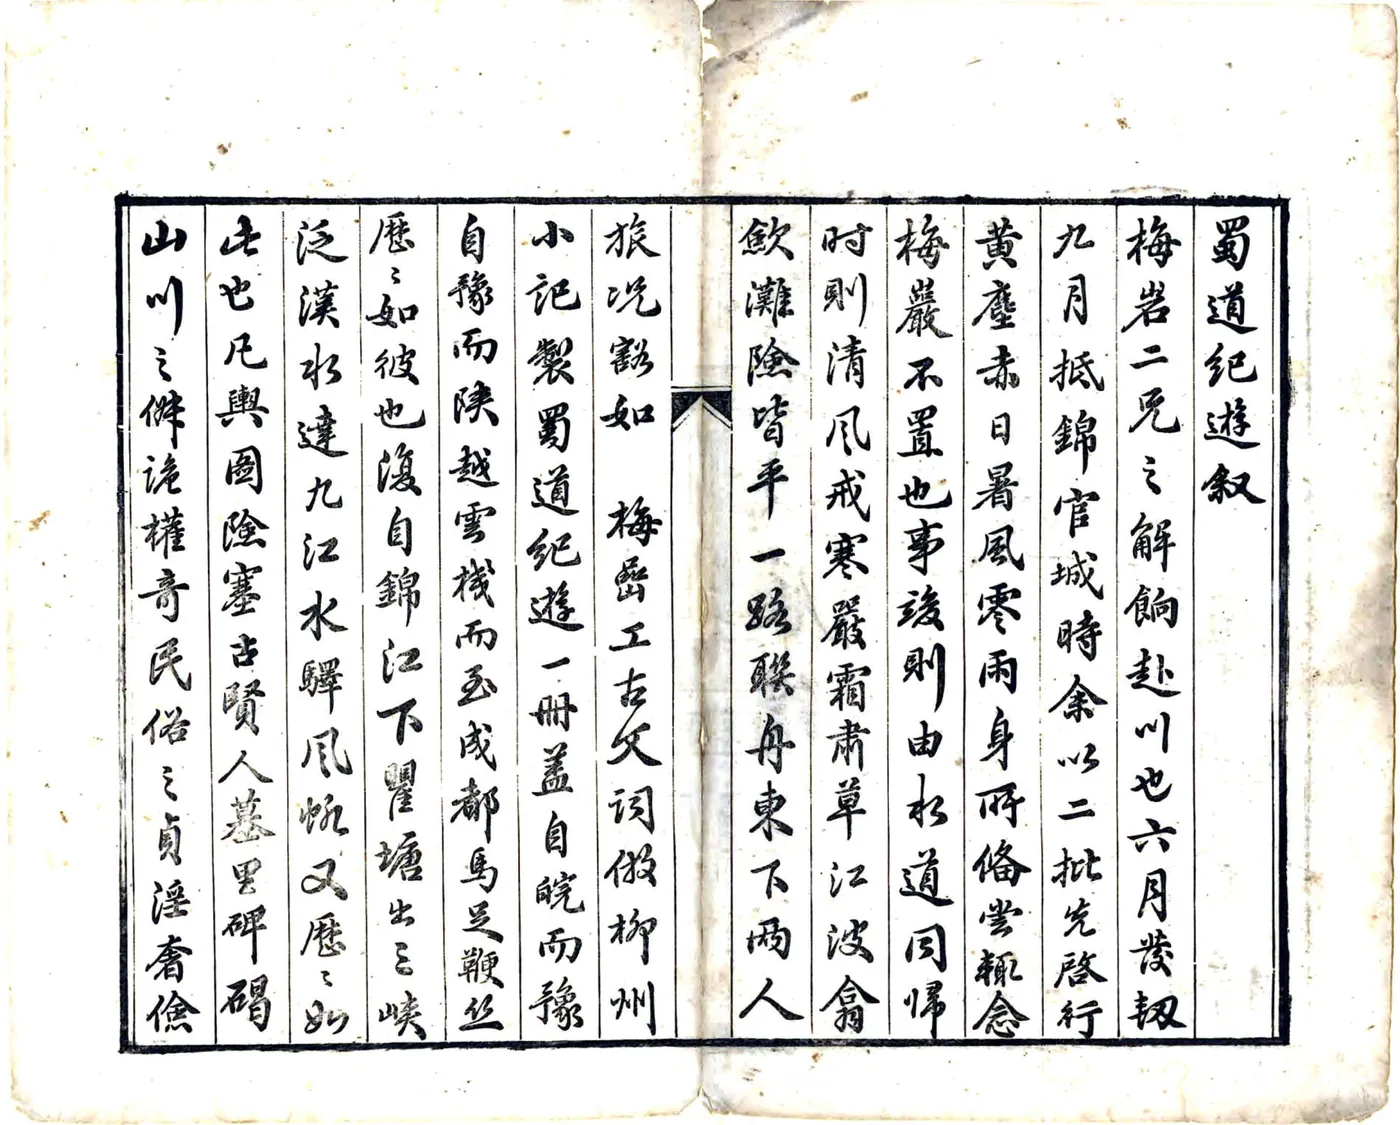 蜀道纪遊叙
梅岩二兄之解餉赴川也六月發軔
九月抵錦官城時余以二批先啓行
黄塵赤日暑風零雨身所俻嘗輙念
梅巖不置也事竣則由水道同歸
时則清风戒寒嚴霜肃草江波翕
歛灘險皆平一路聯舟東下兩人
旅况豁如　梅嵒工古文词倣柳州
小记製蜀道纪遊一冊盖自皖而豫
自豫而陕越雲棧而至成都馬足鞭丝
歷〻如彼也復自錦江下瞿塘出三峡
泛漢水達九江水驛风帆又歷〻如
此也凡輿圖險塞古賢人墓里碑碣
山川之僻诡權奇民俗之貞淫奢儉